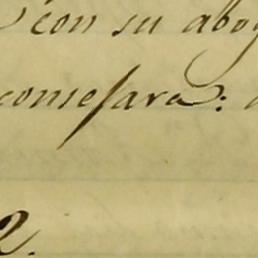 con su abog
consejara:
2.